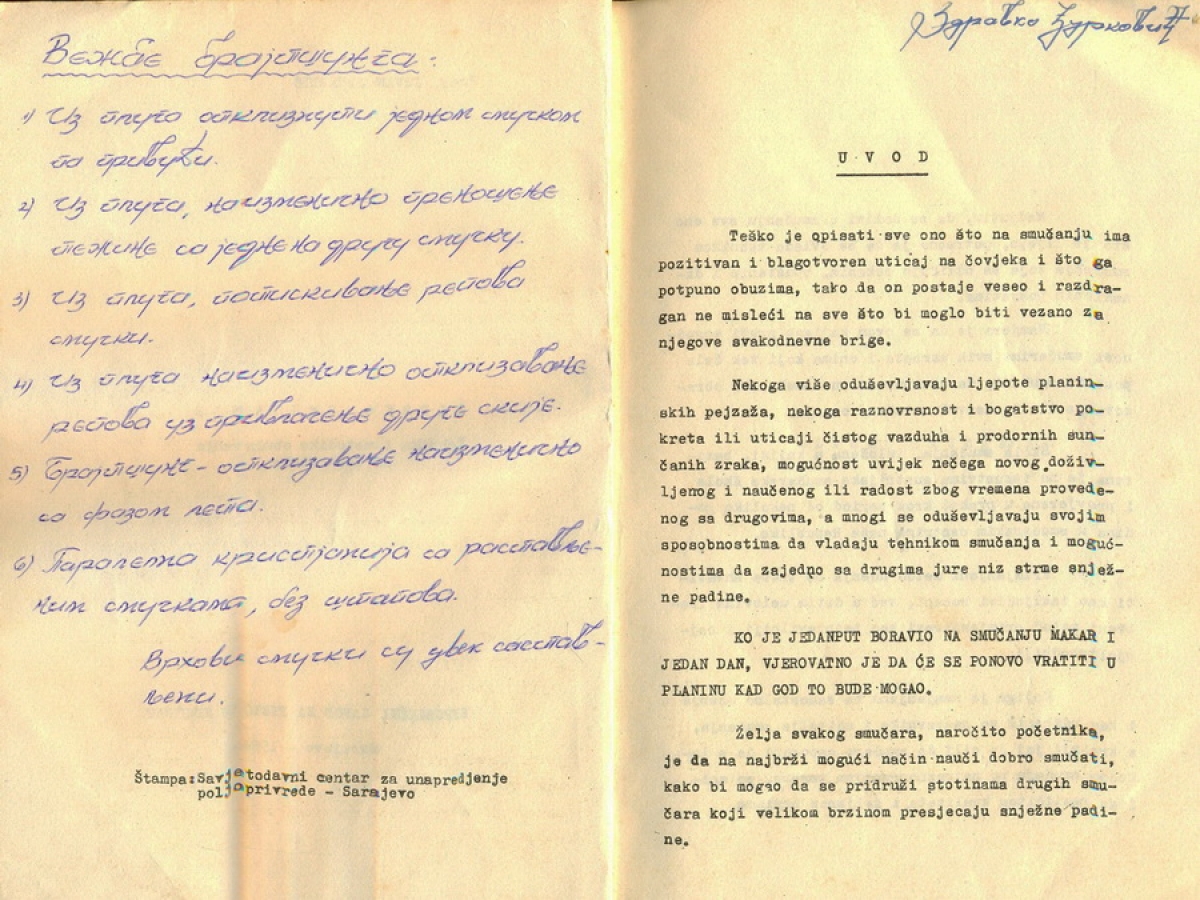 Вежбе брајтшунга:
1) Из плуга отклизнути једном смучком
па привући.
2) Из плуга, наизменично преношење
тежине са једне на другу смучку.
3) Из плуга, потискивање репова
смучки.
4) Из плуга наизменично отклизавање
репова уз привлачење друге скије.
5) Брајтшунг - отклизавање наизменично
са фазом лета.
6) Паралелна кристјанија са растављe-
ним смучкама, без штапова.
Врхови смучки су увек састав-
љени.
Štampa: Savjetodavni centar za unapredjenje
poljoprivrede - Sarajevo
Здравко Зурковић
U V O D
Teško je opisati sve ono što na smučanju ima
pozitivan i blagotvoren uticaj na čovjeka i što ga
potpuno obuzima, tako da on postaje veseo i razdra-
gan ne misleći na sve što bi moglo biti vezano za
njegove svakodnevne brige.
Nekoga više oduševljavaju ljepote planin-
skih pejzaža, nekoga raznovrsnost i bogatstvo po-
kreta ili uticaji čistog vazduha i prodornih sun-
čanih zraka, mogućnost uvijek nečega novog doživ-
ljenog i naučenog ili radost zbog vremena provede-
nog sa drugovima, a mnogi se oduševljavaju svojim
sposobnostima da vladaju tehnikom smučanja i moguć-
nostima da zajedno sa drugima jure niz strme snjež-
ne padine.
KO JE JEDANPUT BORAVIO NA SMUČANJU MAKAR I
JEDAN DAN, VJEROVATNO JE DA ĆE SE PONOVO VRATITI U
PLANINU KAD GOD TO BUDE MOGAO.
Želja svakog smučara, naročito početnika,
je da na najbrži mogući način nauči dobro smučati,
kako bi mogao da se pridruži stotinama drugih smu-
čara koji velikom brzinom presjecaju snježne padi-
ne.